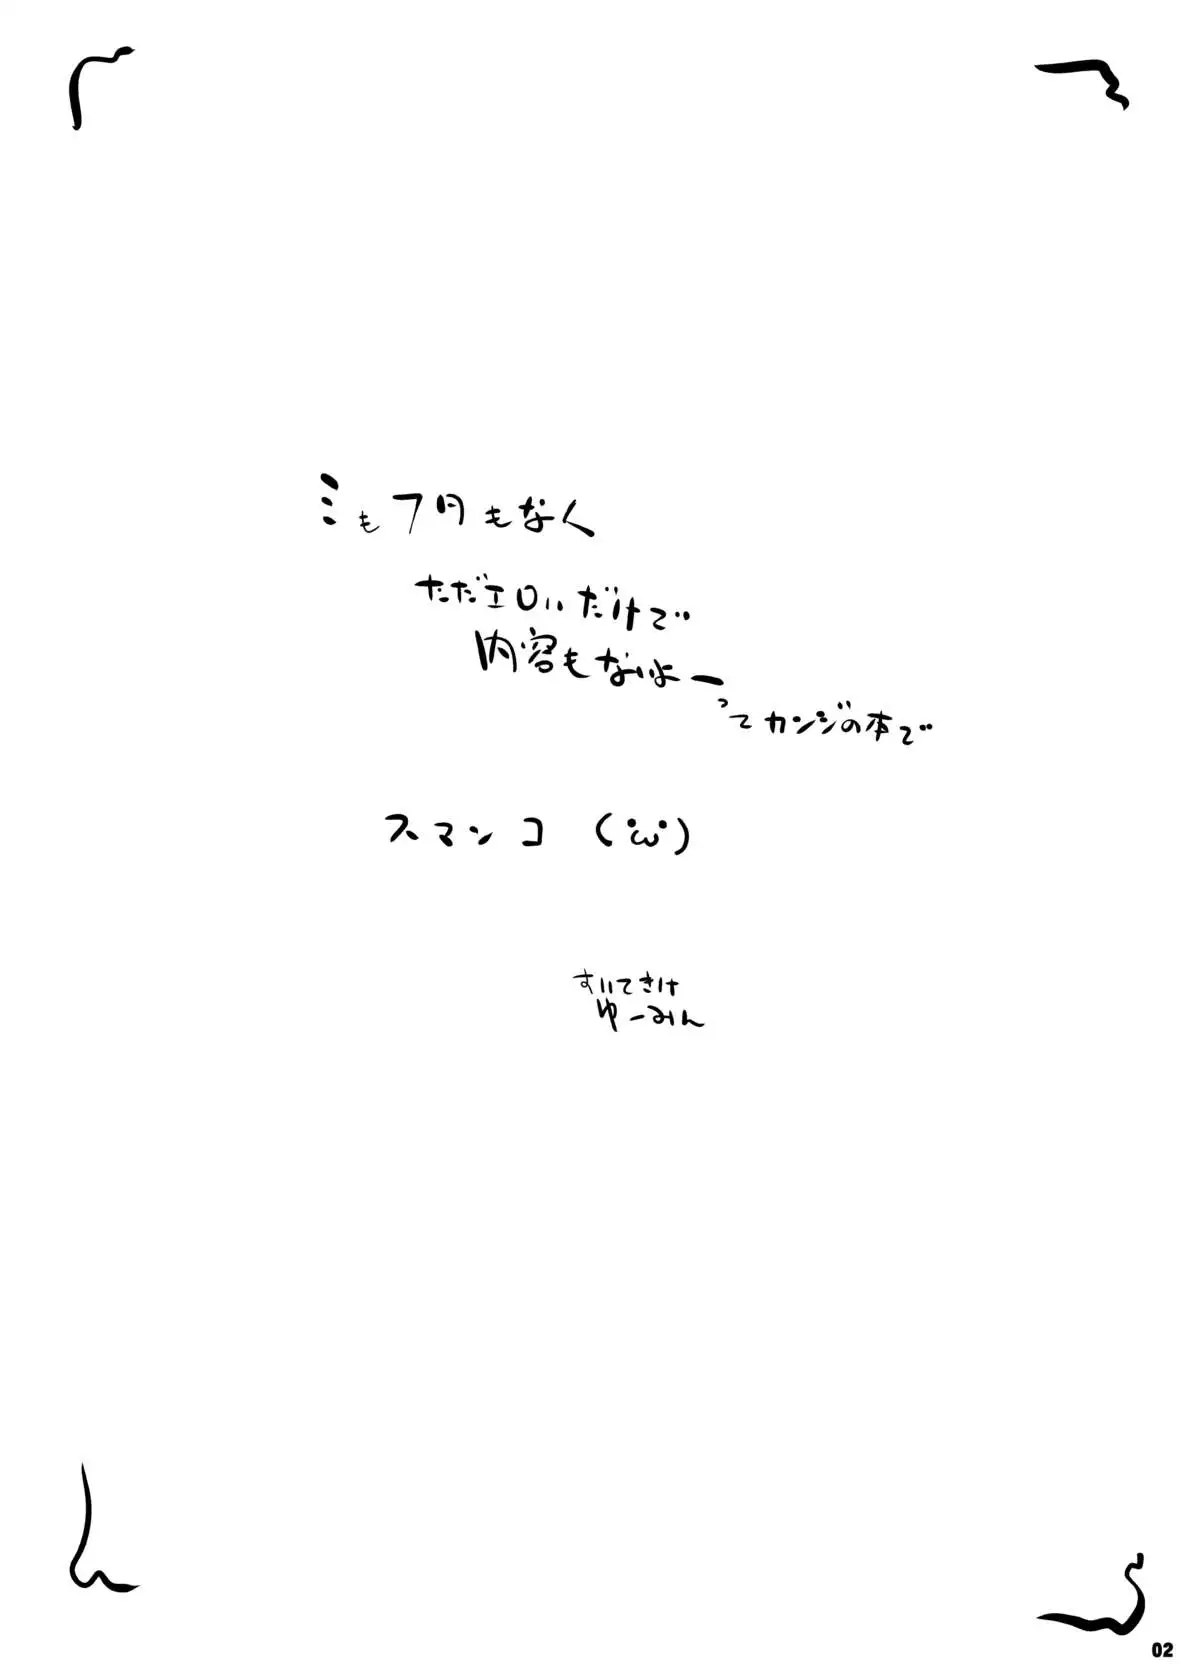 ミもフタもなく
ただエロいだけで
内容もないよー
ってカンジの本で
スマンコ (・ω・)
すいてきけ
ゆーみん
02